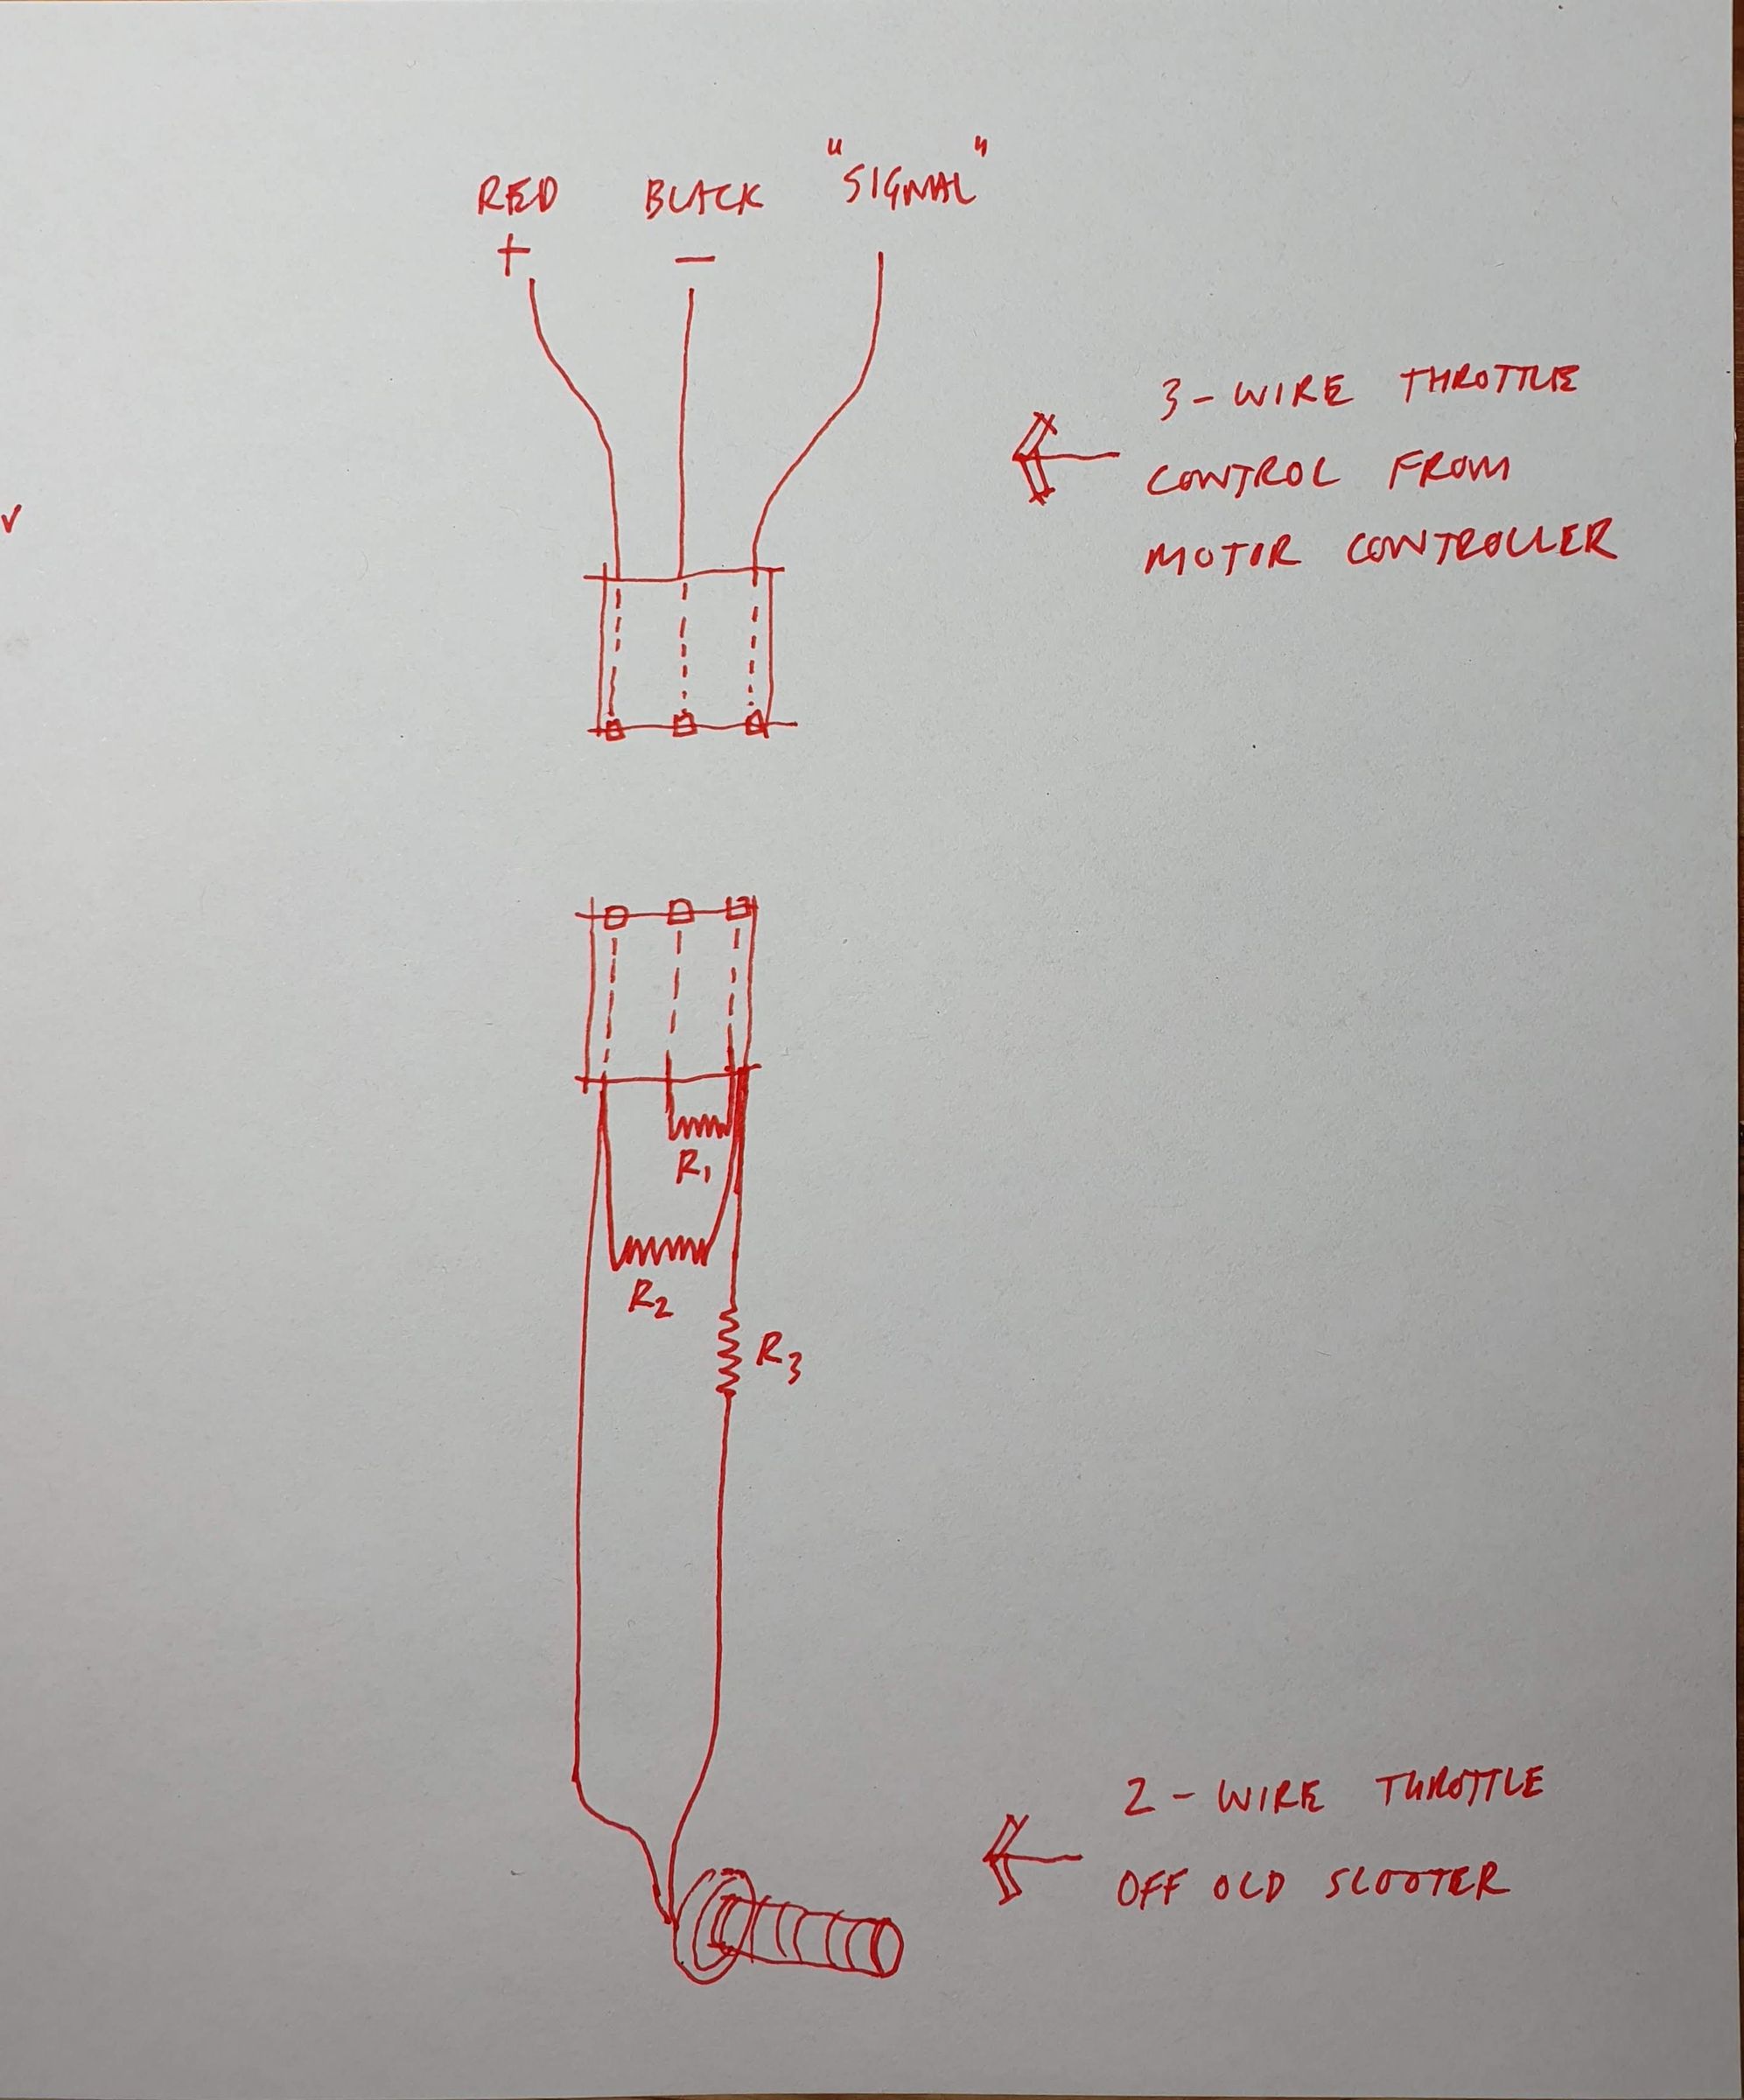 RED BLACK "SIGNAL"
+ −
3-WIRE THROTTLE
CONTROL FROM
MOTOR CONTROLLER
V
R1
R2
R3
2-WIRE THROTTLE
OFF OLD SCOOTER